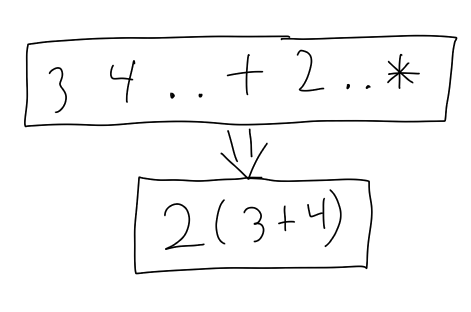 3 4 .. + 2 .. *
2(3+4)